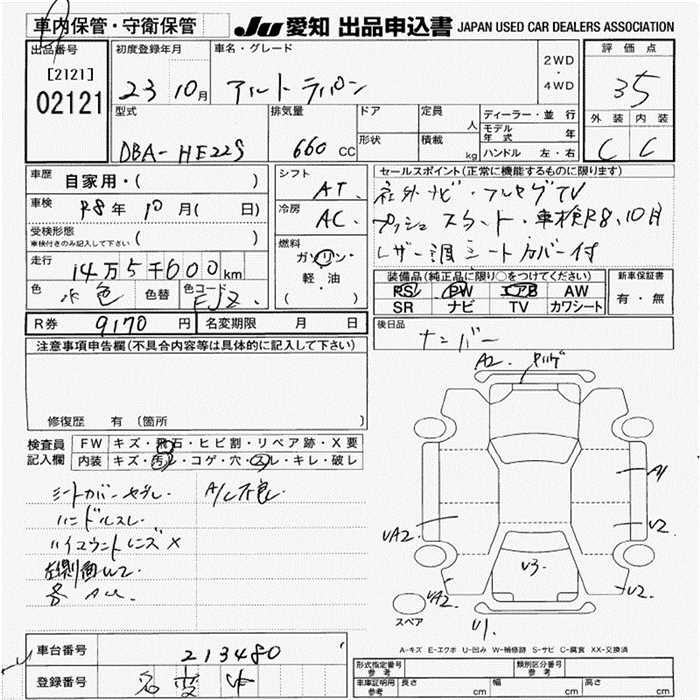 車内保管・守衛保管
JU 愛知 出品申込書 JAPAN USED CAR DEALERS ASSOCIATION
出品番号 初度登録年月 車名・グレード 2WD ・ 4WD 評価点
[2121]
02121 23 10月 アルト ラパン 35
型式 排気量 ドア 定員 人 ディーラー・並行 外装 内装
DBA- HE22S 660 CC 形状 積載 kg モデル年式 年 C C
ハンドル 左・右
車歴 自家用・( ) シフト AT セールスポイント(正常に機能するものに限ります)
車検 R8年 10月( 日) 冷房 AC 社外ナビ・フルセグTV
受検形態 車検付きのみ記入して下さい ( ) 燃料 ガソリン・軽・油 ( ) プッシュスタート・車検R8,10月
走行 14万5千600km レザー調シートカバー付
色 水色 色替 色コード EJZ
装備品(純正品に限り○をつけてください) 新車保証書
PS PW エアB AW 有・無
SR ナビ TV カワシート
R券 9170円 名変期限 月 日 後日品 ナンバー
注意事項申告欄(不具合内容等は具体的に記入して下さい)
修復歴 有 〔箇所 〕
検査員記入欄 FW キズ・飛石・ヒビ割・リペア跡・X要
内装 キズ・汚レ・コゲ・穴・スレ・キレ・破レ
シートカバーヤブレ A/C不良
ハンドルスレ
ハイマウントレンズ X
左側面W2
各 AU
A2 ヤハゲ
A1
UA2
U2
U3
UA2
U2
U1
スペア
A-キズ E-エクボ U-凹み W-補修跡 S-サビ C-腐食 XX-交換済
車台番号 213480
登録番号 名変
形式指定番号 参考 類別区分番号 参考
車庫証明用 参考 長さ cm 幅 cm 高さ cm